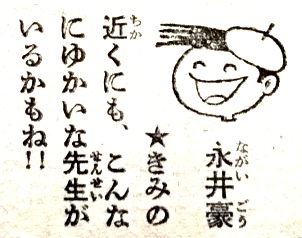 永井豪
★きみの
近くにも、こんな
にゆかいな先生が
いるかもね!!